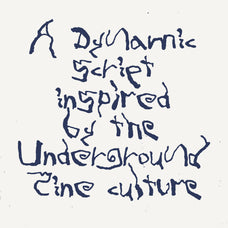 A Dynamic
script
inspired
by the
Underground
Zine culture